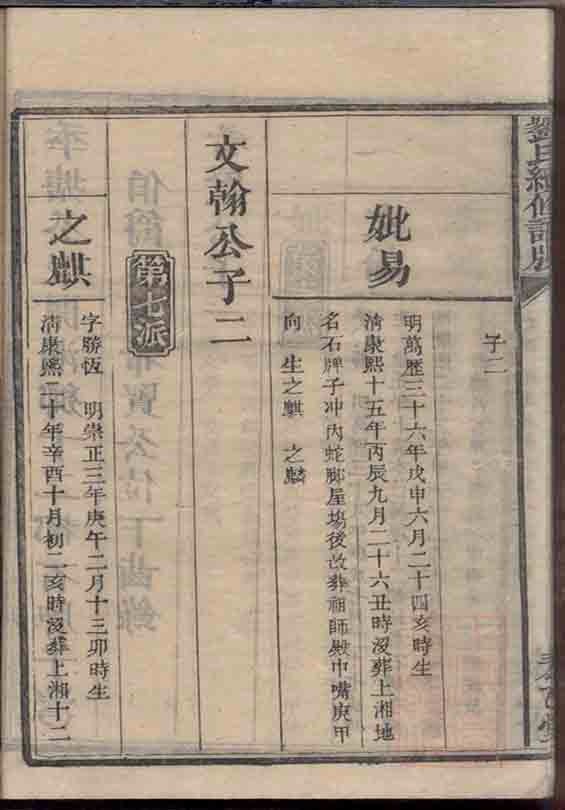 劉氏續修譜牒
子二
妣易
明萬歷三十六年戊申六月二十四亥時生
清康熙十五年丙辰九月二十六丑時沒葬上湘地
名石牌子冲內蛇腳屋塲後改葬祖師殿巾嘴庚甲
向 生之麒 之麟
文翰公子二
第七派
之麒
字勝恆 明崇正三年庚午二月十三卯時生
清康熙二十年辛酉十月初二亥時沒葬上湘十二